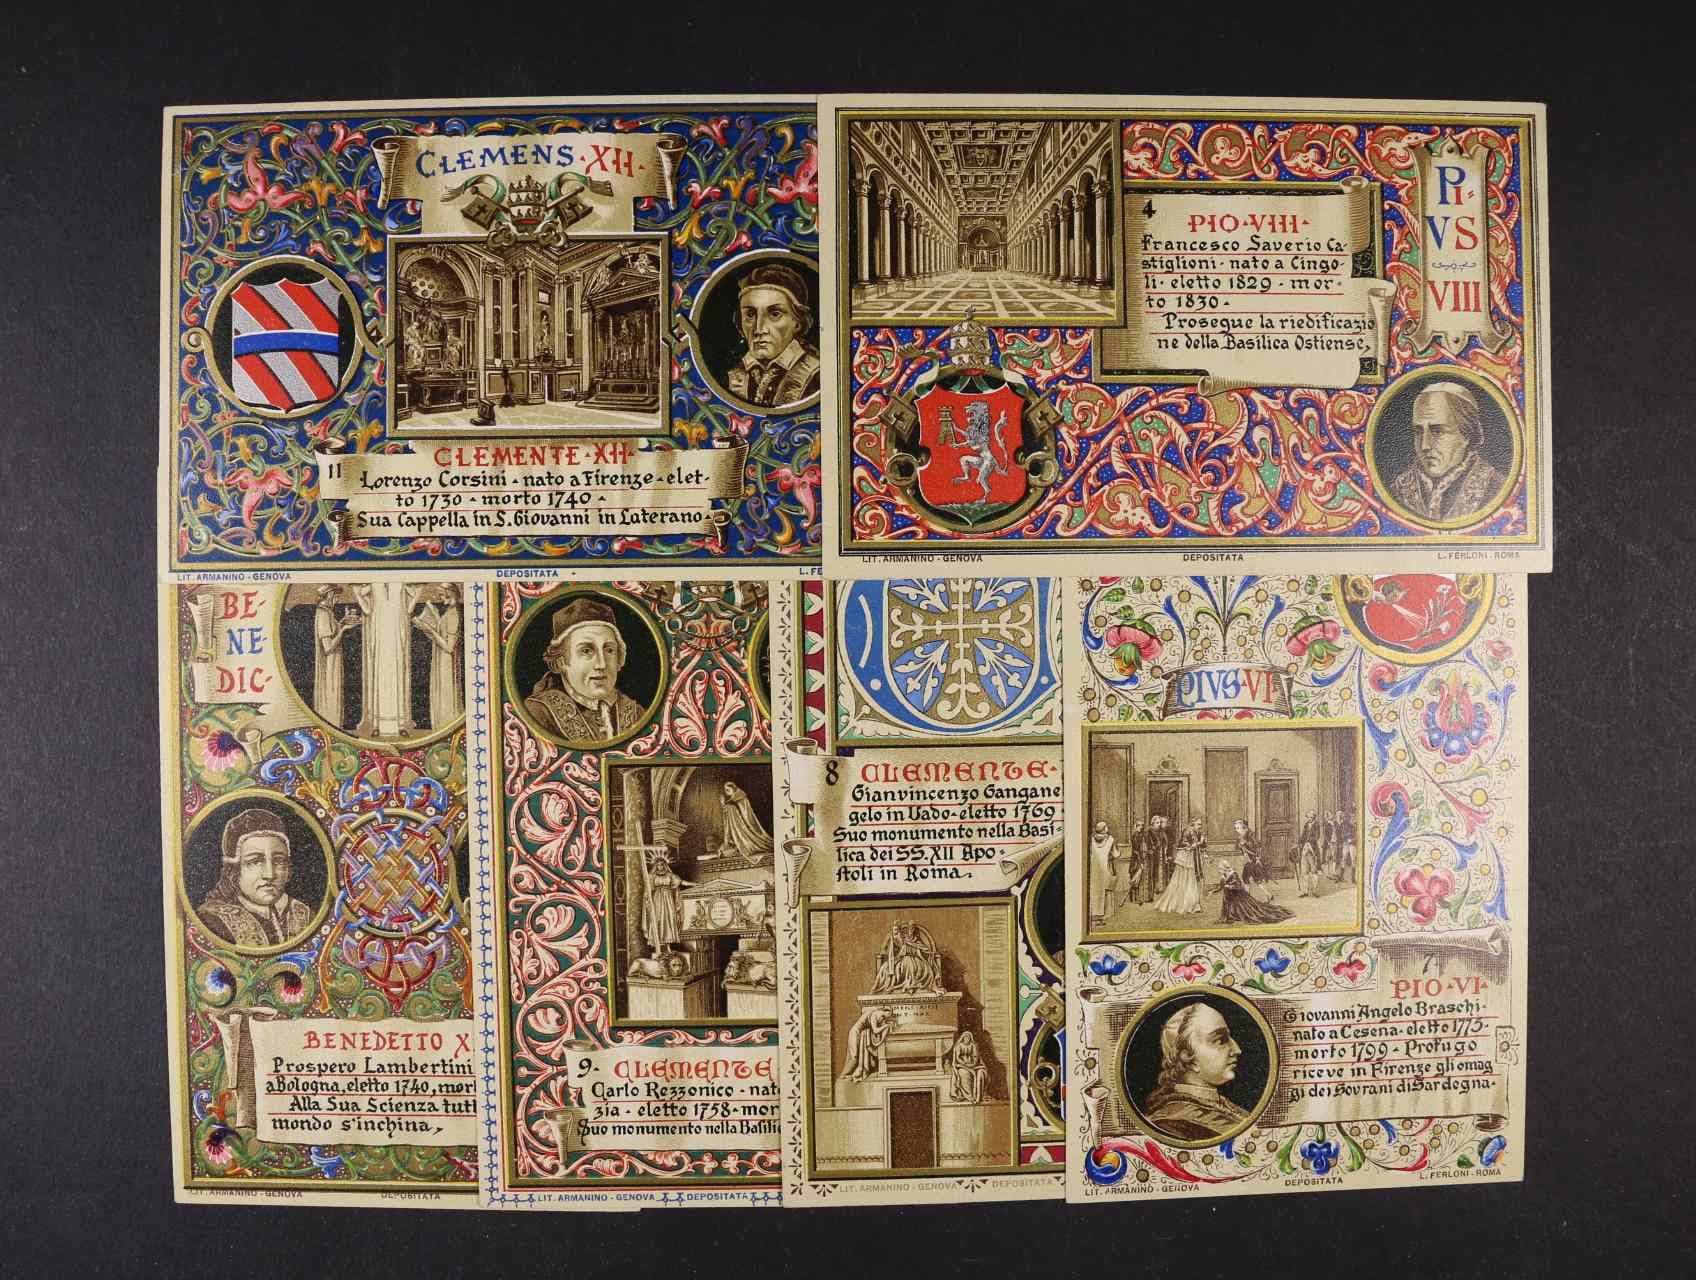 CLEMENS·XII·
11
CLEMENTE·XII·
Lorenzo Corsini - nato a Firenze - elet-
to 1730 - morto 1740 -
Sua Cappella in S. Giovanni in Laterano.
LIT. ARMANINO - GENOVA
DEPOSITATA
L. FE
4
PIO·VIII·
Francesco Saverio Ca-
stiglioni - nato a Cingo-
li - eletto 1829 - mor-
to 1830 -
Prosegue la riedificazio
ne della Basilica Ostiense,
PI-
VS
VIII
LIT. ARMANINO - GENOVA
DEPOSITATA
L. FERLONI - ROMA
BE-
NE-
DIC-
BENEDETTO X
Prospero Lambertini
a Bologna, eletto 1740, mor
Alla Sua Scienza tutt
mondo s'inchina,
LIT. ARMANINO - GENOVA
DEPOSITATA
9-
CLEMENTE
Carlo Rezzonico - nat
zia - eletto 1758 - mor
Suo monumento nella Basilic
LIT. ARMANINO - GENOVA
DEPOSITATA
8
CLEMENTE-
Gianvincenzo Gangane
gelo in Vado - eletto 1769
Suo monumento nella Basi-
lica dei SS. XII Apo-
stoli in Roma.
LIT. ARMANINO - GENOVA
DEPOSITATA
PIVS·VI
7
PIO·VI·
Giovanni Angelo Braschi-
nato a Cesena - eletto 1775-
morto 1799 - Profugo
riceve in Firenze gli omag
gi dei Sovrani di Sardegna-
LIT. ARMANINO - GENOVA
DEPOSITATA
L. FERLONI - ROMA